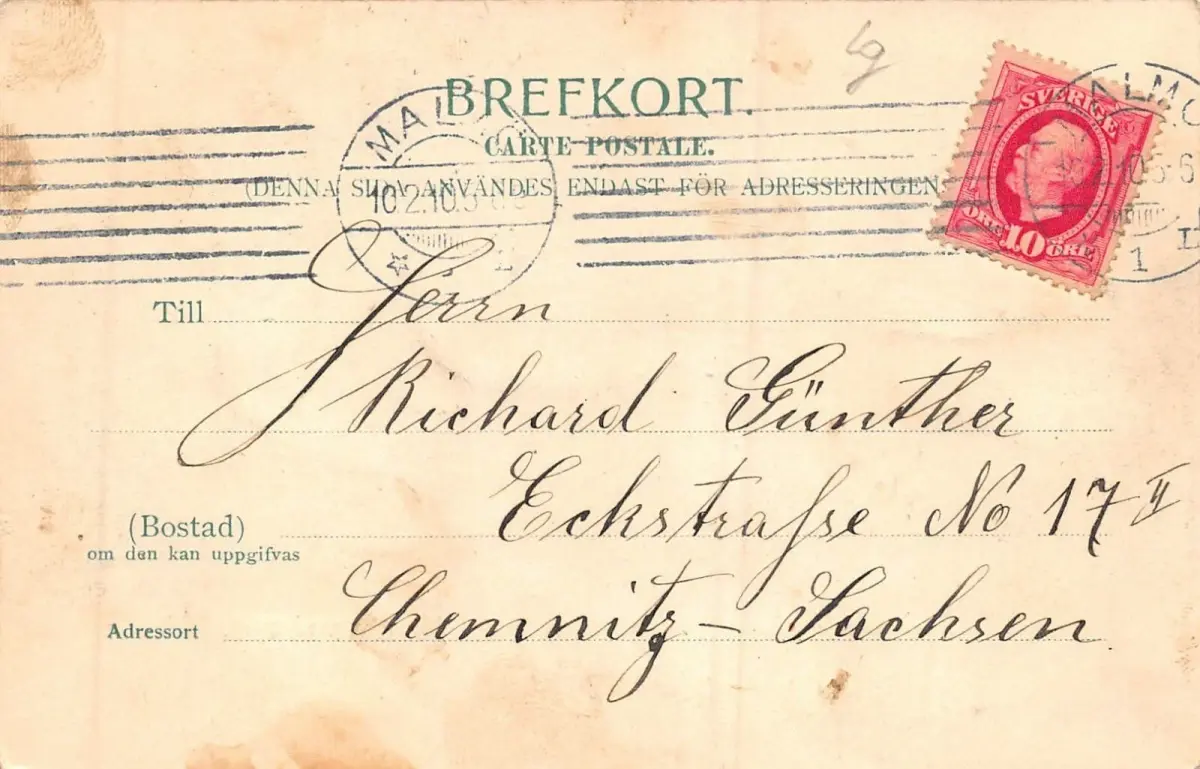 lg
BREFKORT.
CARTE POSTALE.
(DENNA SIDA ANVÄNDES ENDAST FÖR ADRESSERINGEN
MAL
10.2.10.5-6
SVERIGE
ÖRE 10 ÖRE
ALMÖ
2.10.5-6
1 L
Till Herrn
Richard Günther
(Bostad) Eckstraße No 17 II
om den kan uppgifvas
Adressort Chemnitz – Sachsen